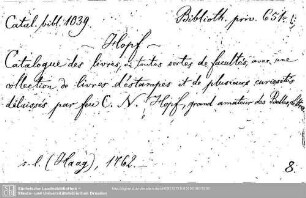 Catal. bibl. 1039. Biblioth. priv. 651.
Hopf
Catalogue des livres, en toutes sortes de facultés, avec une
collection de livres d'éstampes et de plusieurs curiosités
délaissés par feu C. N. Hopf, grand amateur des Belles
s. l. (Haag), 1762.
8.
Sächsische Landesbibliothek -
Staats- und Universitätsbibliothek Dresden